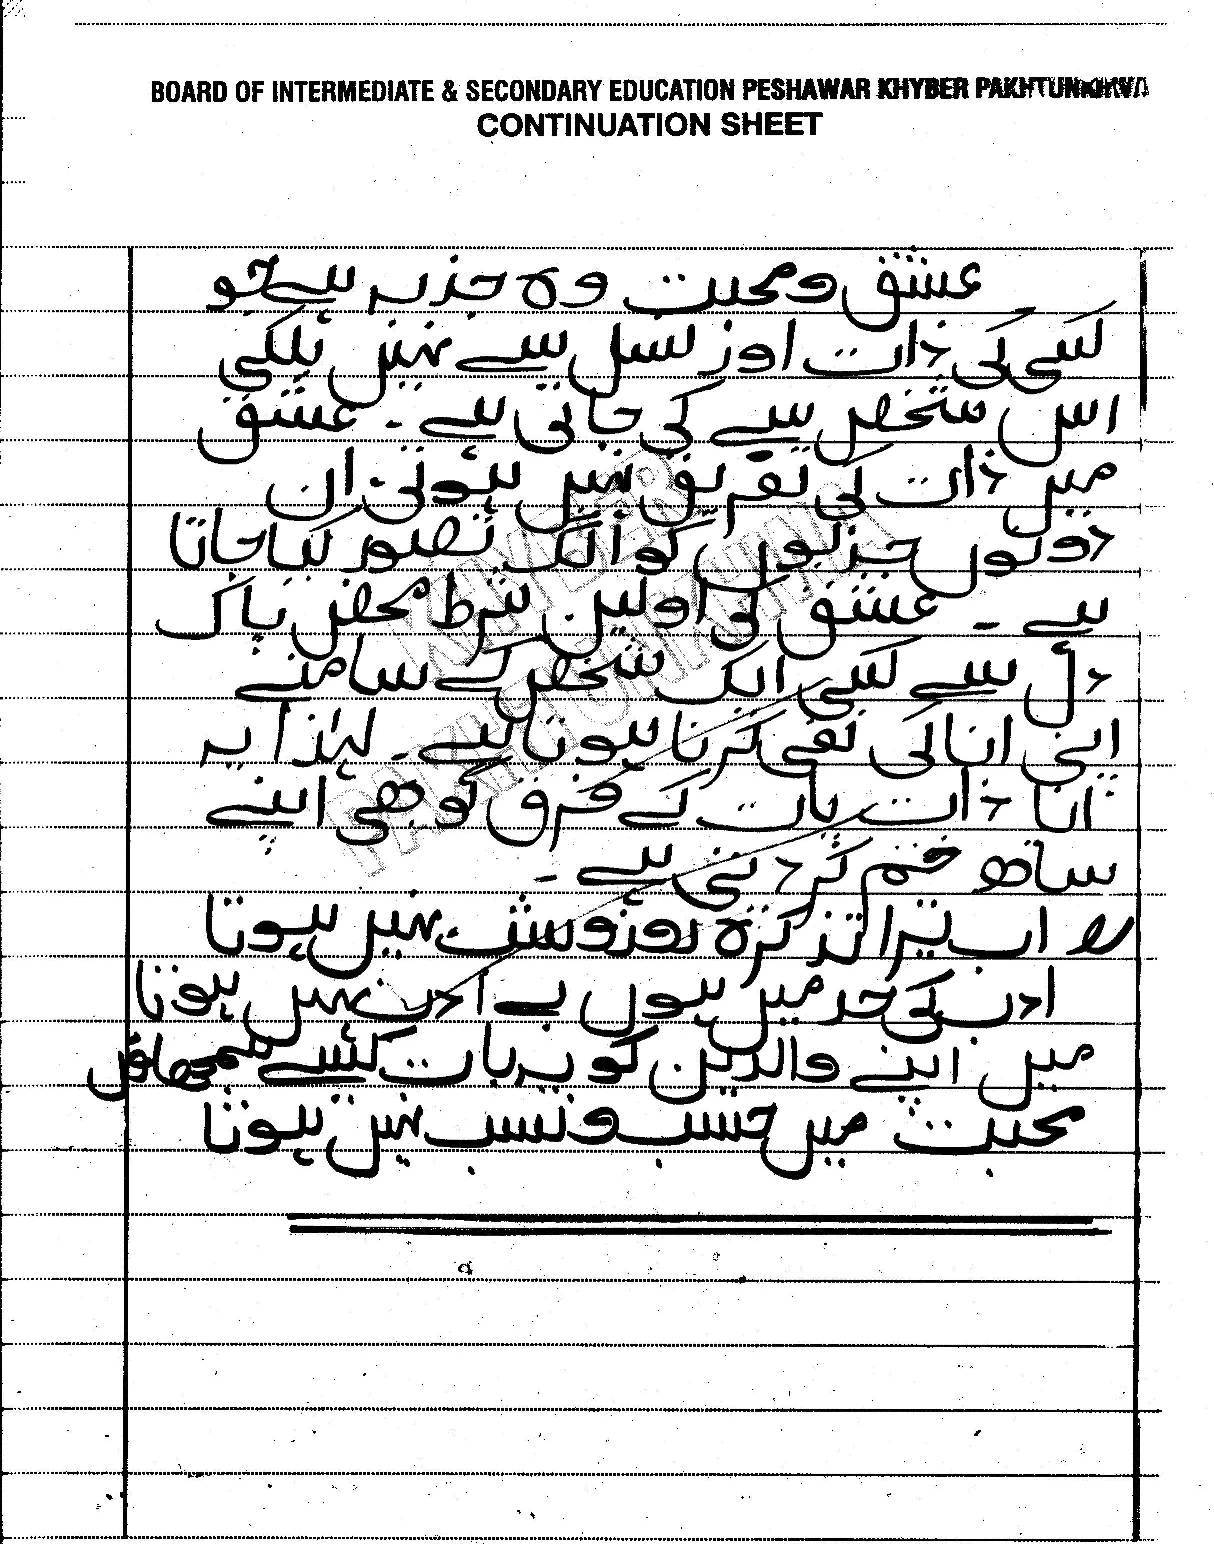 BOARD OF INTERMEDIATE & SECONDARY EDUCATION PESHAWAR KHYBER PAKHTUNKHWA
CONTINUATION SHEET
عشق و محبت وہ جذبہ ہے جو
کسی کی ذات اور نسل سے نہیں بلکہ
اس شخص سے کی جاتی ہے ۔ عشق
میں ذات کی تفریق نہیں ہوتی ان
دونوں جذبوں کو الگ تصور کیا جاتا
ہے ۔ عشق کی اولین شرط محض پاک
دل سے کسی ایک شخص کے سامنے
اپنی انا کی نفی کرنا ہوتا ہے ۔ لہذا یہ
انا ذات پات کے فرق کو بھی اپنے
ساتھ ختم کر دیتی ہے ۔
اب تیرا تذکرہ روز و شب نہیں ہوتا
ادب کی حد میں ہوں بے ادب نہیں ہوتا
میں اپنے والدین کو یہ بات کیسے سمجھاؤں
محبت میں حسب و نسب نہیں ہوتا
KHYBER
PAKHTUNKHWA